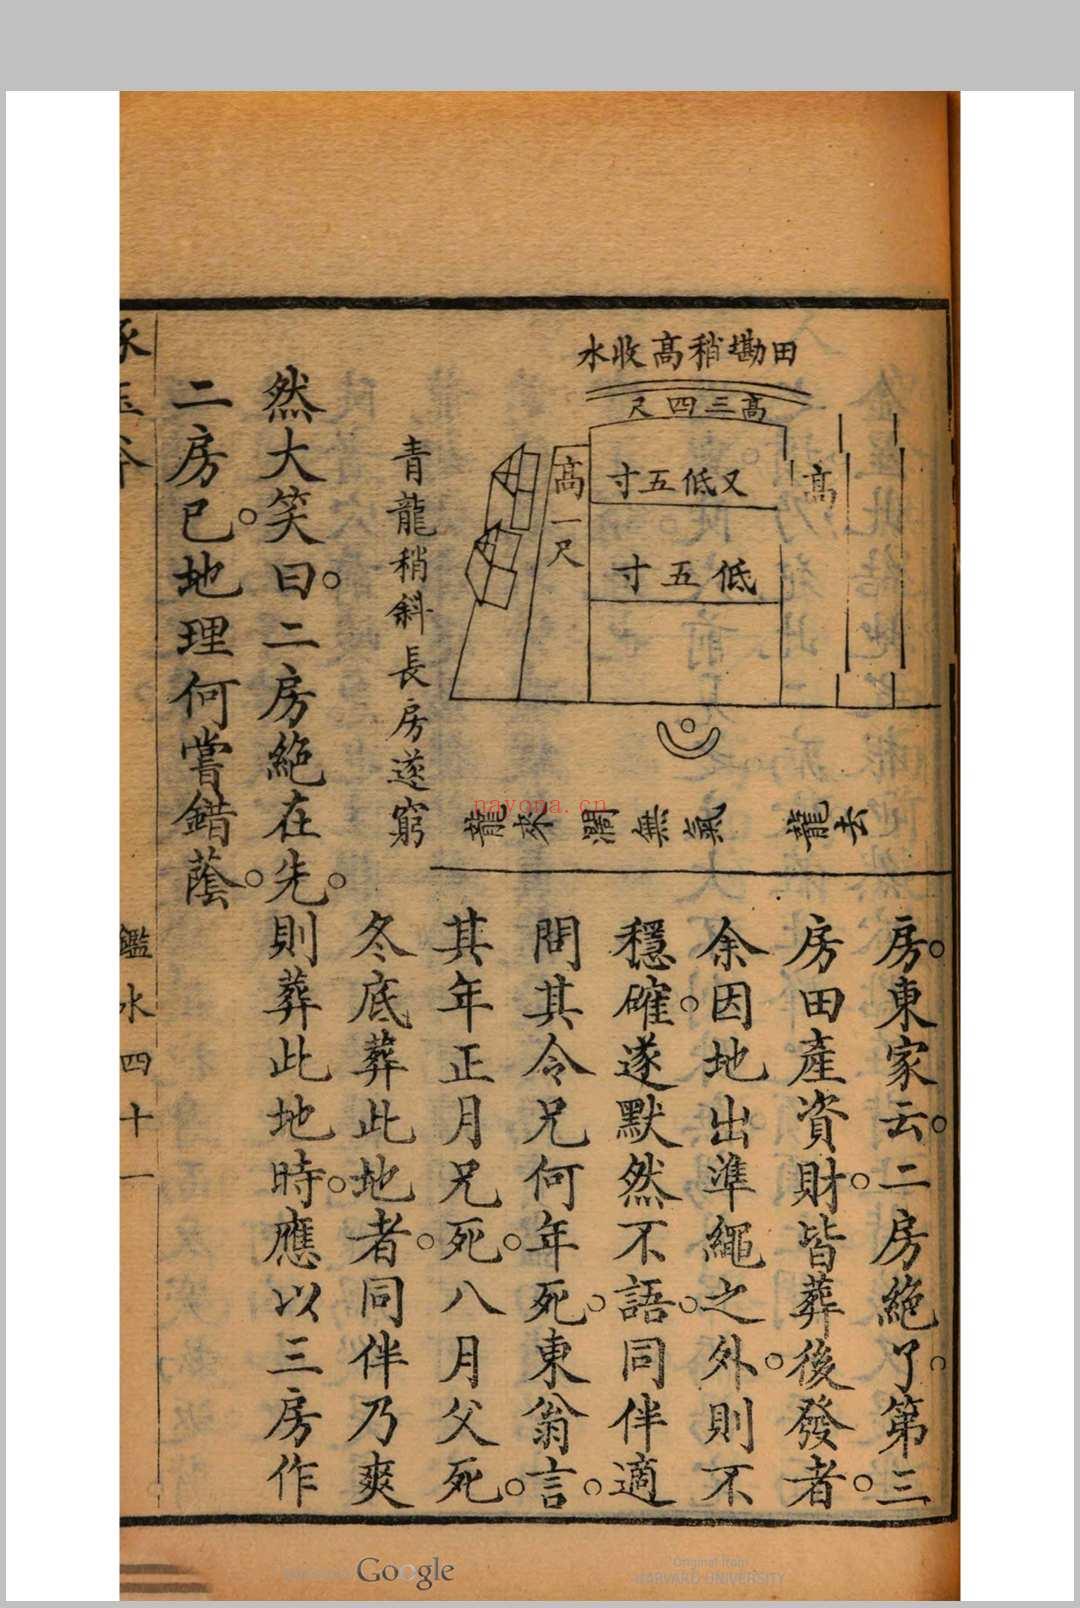 田塝稍高收水
高三四尺
又低五寸
低五寸
高一尺
高
青龍稍斜長房遂窮
去龍
氣無濶來龍
房東家云二房絶了第三
房田產資財皆葬後發者
余因地出準繩之外則不
穩確遂默然不語同伴適
問其令兄何年死東翁言
其年正月兄死八月父死
冬底葬此地者同伴乃爽
然大笑曰二房絶在先則葬此地時應以三房作
二房已地理何嘗錯蔭
鑑水四十一
nayona.cn
Google
Original from
HARVARD UNIVERSITY